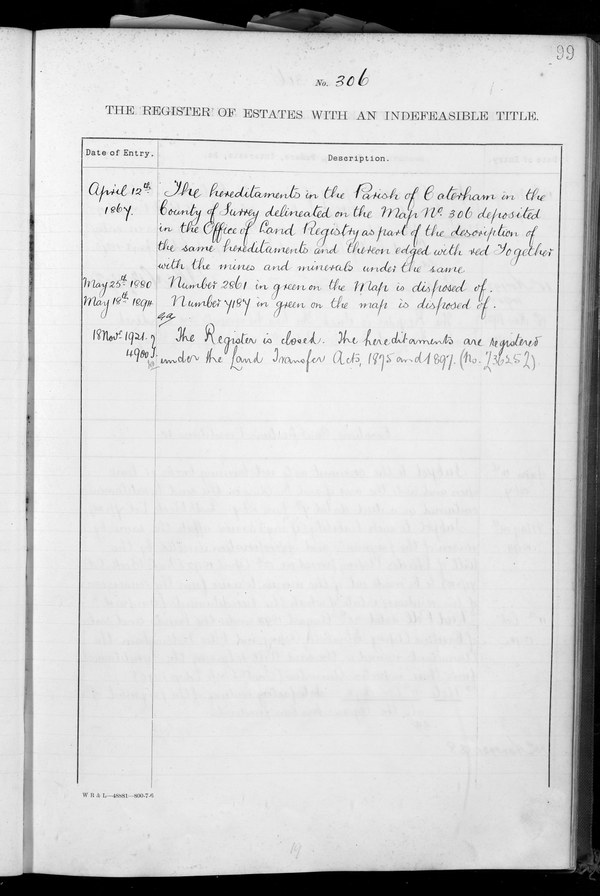 99
No. 306
THE REGISTER OF ESTATES WITH AN INDEFEASIBLE TITLE.
Date of Entry. Description.
April 12th The hereditaments in the Parish of Caterham in the
1867. County of Surrey delineated on the Map No. 306 deposited
in the Office of Land Registry as part of the description of
the same hereditaments and thereon edged with red Together
with the mines and minerals under the same
May 25th 1880 Number 2861 in green on the Map is disposed of.
May 18th 1894 Number 7187 in green on the map is disposed of.
18 Novr 1921. The Register is closed. The hereditaments are registered
4900 under the Land Transfer Acts, 1875 and 1897. (No. 236252)
W B & L—48881—800-7-6